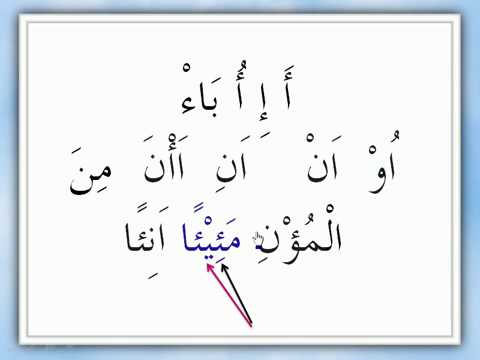 أَ إِ أُ بَاءْ
اُوْ اَنْ اَنِ اَأْنَ مِنَ
الْمُؤْنِ مَئِيْئًا اَنِئًا